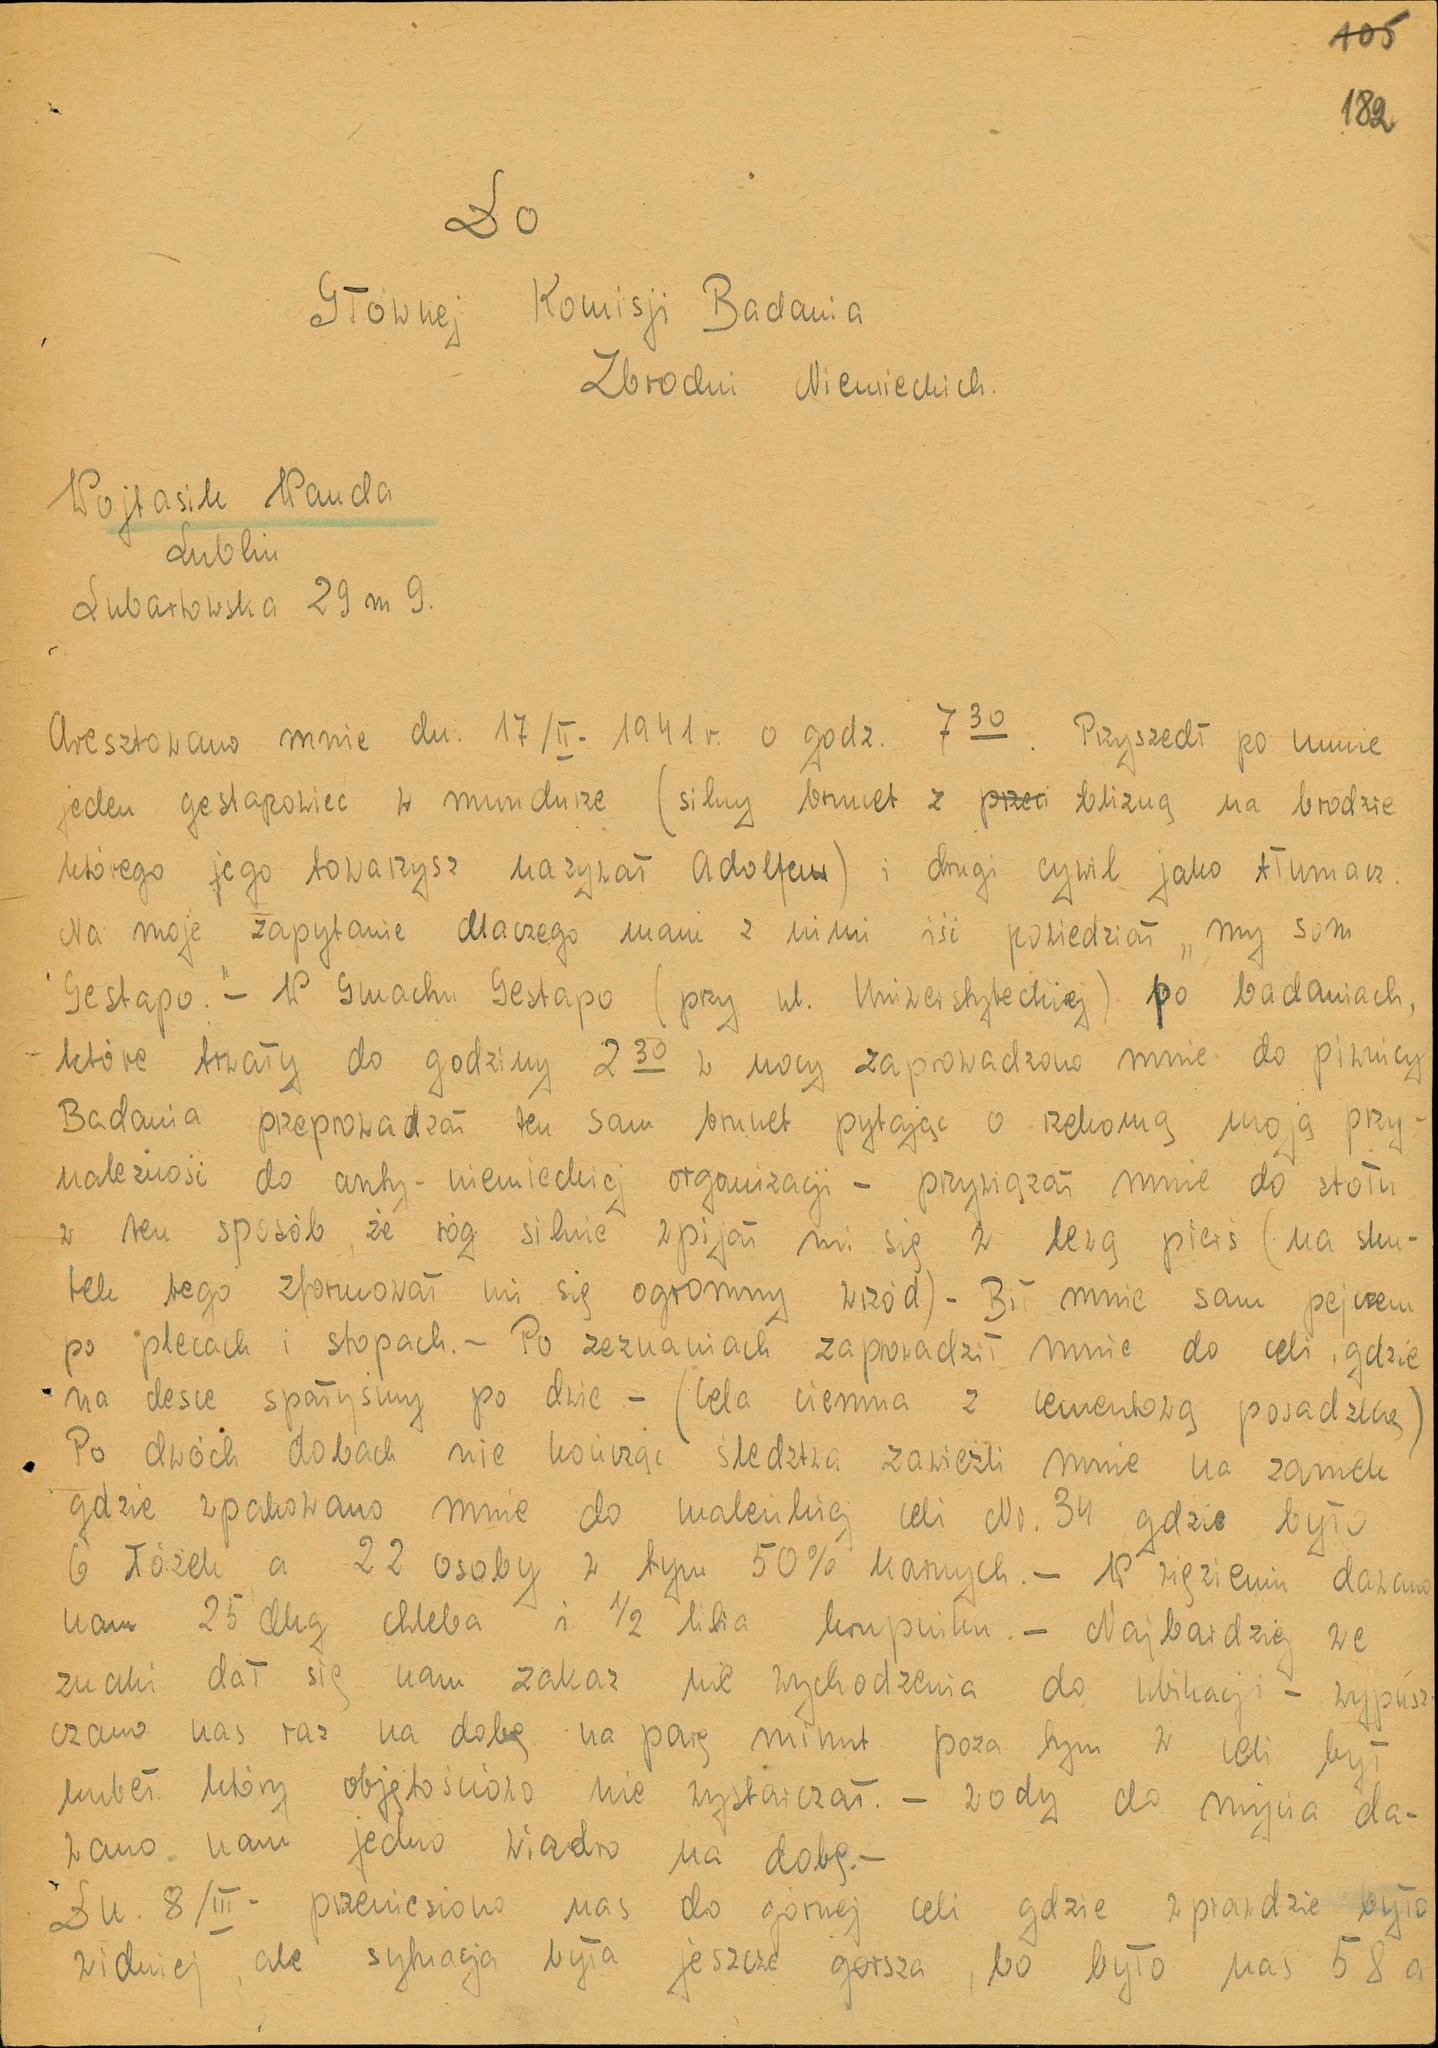 105
182
Do
Głównej Komisji Badania
Zbrodni Niemieckich.
Wojtasik Wanda
Lublin
Lubartowska 29 m 9.
Aresztowano mnie dn. 17/II - 1941 r. o godz. 7 30. Przyszedł po mnie
jeden gestapowiec w mundurze (silny brunet z przeci blizną na brodzie
którego jego towarzysz nazywał Adolfem) i drugi cywil jako tłumacz.
Na moje zapytanie dlaczego mam z nimi iść powiedział „my som
Gestapo." - W Gmachu Gestapo (przy ul. Uniwersyteckiej) po badaniach,
które trwały do godziny 2 30 w nocy zaprowadzono mnie do piwnicy
Badania przeprowadzał ten sam brunet pytając o rzekomą moją przy-
należność do anty-niemieckiej organizacji - przywiązał mnie do stołu
w ten sposób, że róg silnie wpijał mi się w lewą pierś (na sku-
tek tego zformował mi się ogromny wrzód) - Bił mnie sam pejczem
po plecach i stopach. - Po zeznaniach zaprowadził mnie do celi, gdzie
na desce spałyśmy po dwie - (Cela ciemna z cementową posadzką)
Po dwóch dobach nie kończąc śledztwa zawieźli mnie na zamek
gdzie wpakowano mnie do maleńkiej celi No. 34 gdzie było
6 łóżek a 22 osoby w tym 50% karnych. - W więzieniu dawano
nam 25 dkg chleba i 1/2 litra krupniku. - Najbardziej we
znaki dał się nam zakaz nie wychodzenia do ubikacji - wypusz-
czano nas raz na dobę na parę minut poza tym w celi był
kubeł który objętościowo nie wystarczał. - wody do mycia da-
wano nam jedno wiadro na dobę. -
Dn. 8/III - przeniesiono nas do górnej celi gdzie wprawdzie było
widniej, ale sytuacja była jeszcze gorsza, bo było nas 58 a